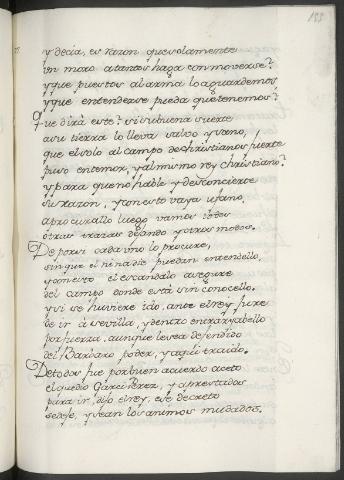 188
y decia, es razon que solamente
un moro a tantos haga con moverse?
y que puestos al arma lo aguardemos
y que entenderse pueda que tenemos?
Que dirà este? si su buena suerte
a su tierra lo lleva salvo y sano,
que el solo al campo de christianos fuerte
puso en temor, y al mismo rey christiano?
y para que no hable y desconcierte
su razon, y con esto vaya ufano,
a procurallo luego vamos todos
otras trazas dejando y otros modos.
De por si cada uno lo procure,
sin que el ni nadie puedan entendello,
y con esto el escandalo asegure
del campo donde està sin conocello.
y si se huviere ido, ante el rey jure
de ir à sevilla, y dentro entrar y abello
por fuerza, aunque sea defendido
del Barbaro poder, y aqui traido.
De todos fue por buen acuerdo aceto
el que dio Garci Perez, y aprestados
para ir, dijo el rey, ese decreto
se deje, y sean los animos mudados.